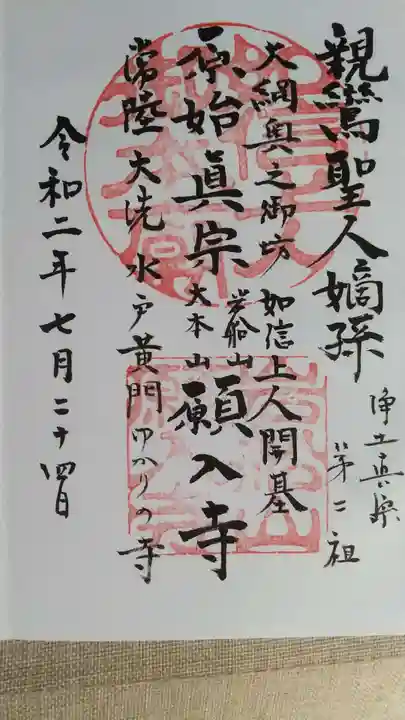 親鸞聖人嫡孫
浄土真宗
第二祖
大網奥之御坊 如信上人開基
原始眞宗
岩船山
大本山
願入寺
常陸大洗水戸黄門ゆかりの寺
令和二年七月二十四日